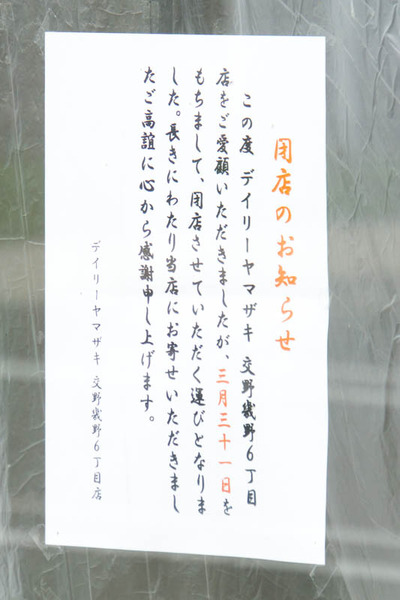 閉店のお知らせ
この度 デイリーヤマザキ 交野幾野6丁目
店をご愛顧いただきましたが、三月三十一日を
もちまして、閉店させていただく運びとなりま
した。長きにわたり当店にお寄せいただきまし
たご高誼に心から感謝申し上げます。
デイリーヤマザキ 交野幾野6丁目店